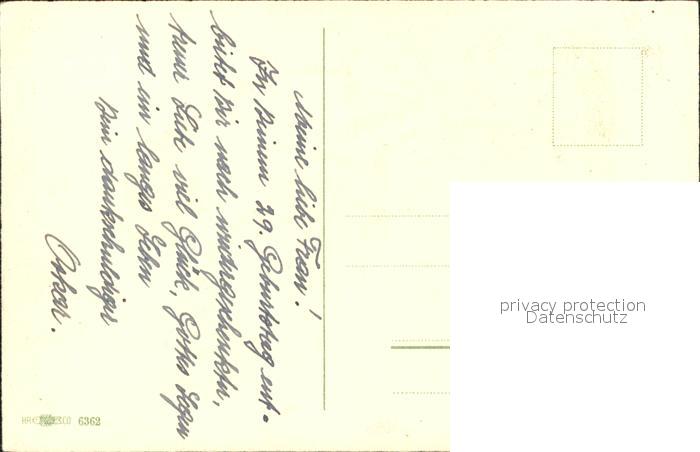 Meine liebe Frau!
Zu Deinem 29. Geburtstag ent-
bietet Dir nach wiedergeschenkter,
treuer Liebe viel Glück, Gottes Segen
und ein langes Leben
Dein dankschuldiger
Oskar.
6362
privacy protection
Datenschutz